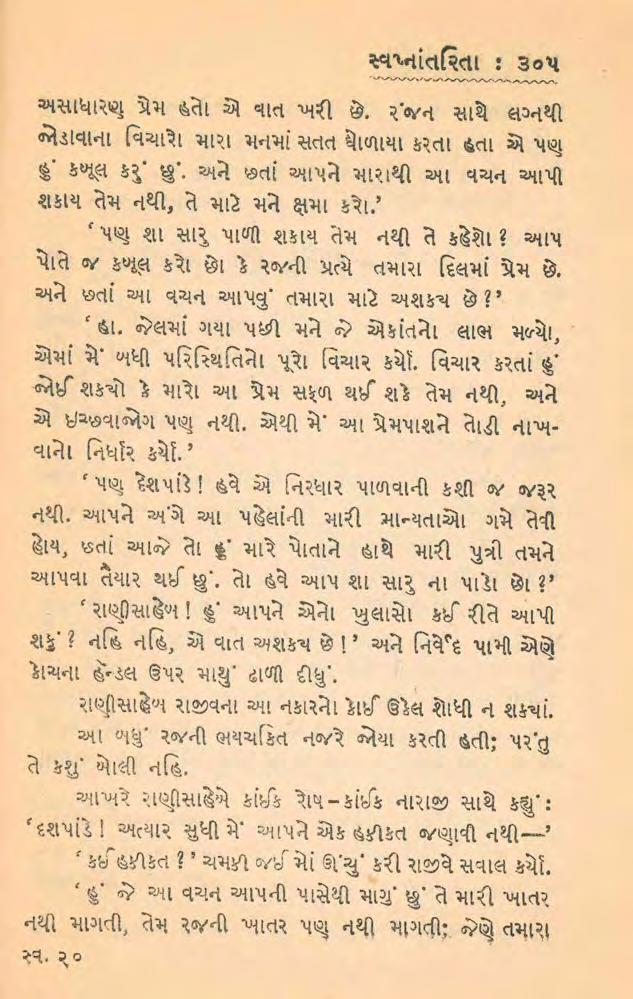 સ્વપ્નાંતરિતા : ૩૦૫
અસાધારણ પ્રેમ હતો એ વાત ખરી છે. રંજન સાથે લગ્નથી
જોડાવાના વિચારો મારા મનમાં સતત ઘોળાયા કરતા હતા એ પણ
હું કબૂલ કરું છું. અને છતાં આપને મારાથી આ વચન આપી
શકાય તેમ નથી, તે માટે મને ક્ષમા કરો.’
‘પણ શા સારુ પાળી શકાય તેમ નથી તે કહેશો ? આપ
પોતે જ કબૂલ કરો છો કે રજની પ્રત્યે તમારા દિલમાં પ્રેમ છે.
અને છતાં આ વચન આપવું તમારા માટે અશકય છે ?’
‘હા. જેલમાં ગયા પછી મને જે એકાંતનો લાભ મળ્યો,
એમાં મેં બધી પરિસ્થિતિનો પૂરો વિચાર કર્યો. વિચાર કરતાં હું
જોઈ શકયો કે મારો આ પ્રેમ સફળ થઈ શકે તેમ નથી, અને
એ ઇચ્છવાજોગ પણ નથી. એથી મેં આ પ્રેમપાશને તોડી નાખ-
વાનો નિર્ધાર કર્યો.’
‘પણ દેશપાંડે ! હવે એ નિરધાર પાળવાની કશી જ જરૂર
નથી. આપને અંગે આ પહેલાંની મારી માન્યતાઓ ગમે તેવી
હોય, છતાં આજે તો હું મારે પોતાને હાથે મારી પુત્રી તમને
આપવા તૈયાર થઈ છું. તો હવે આપ શા સારુ ના પાડો છો ?’
‘રાણીસાહેબ ! હું આપને એનો ખુલાસો કઈ રીતે આપી
શકું ? નહિ નહિ, એ વાત અશકય છે !’ અને નિર્વેદ પામી એણે
કોચના હૅન્ડલ ઉપર માથું ઢાળી દીધું.
રાણીસાહેબ રાજીવના આ નકારનો કોઈ ઉકેલ શોધી ન શકયાં.
આ બધું રજની ભયચકિત નજરે જોયા કરતી હતી; પરંતુ
તે કશું બોલી નહિ.
આખરે રાણીસાહેબે કાંઈક રોષ–કાંઈક નારાજી સાથે કહ્યું :
‘દેશપાંડે ! અત્યાર સુધી મેં આપને એક હકીકત જણાવી નથી—’
‘કઈ હકીકત ?’ ચમકી જઈ મોં ઊંચું કરી રાજીવે સવાલ કર્યો.
‘હું જે આ વચન આપની પાસેથી માગું છું તે મારી ખાતર
નથી માગતી, તેમ રજની ખાતર પણ નથી માગતી; જેણે તમારા
સ્વ. ૨૦